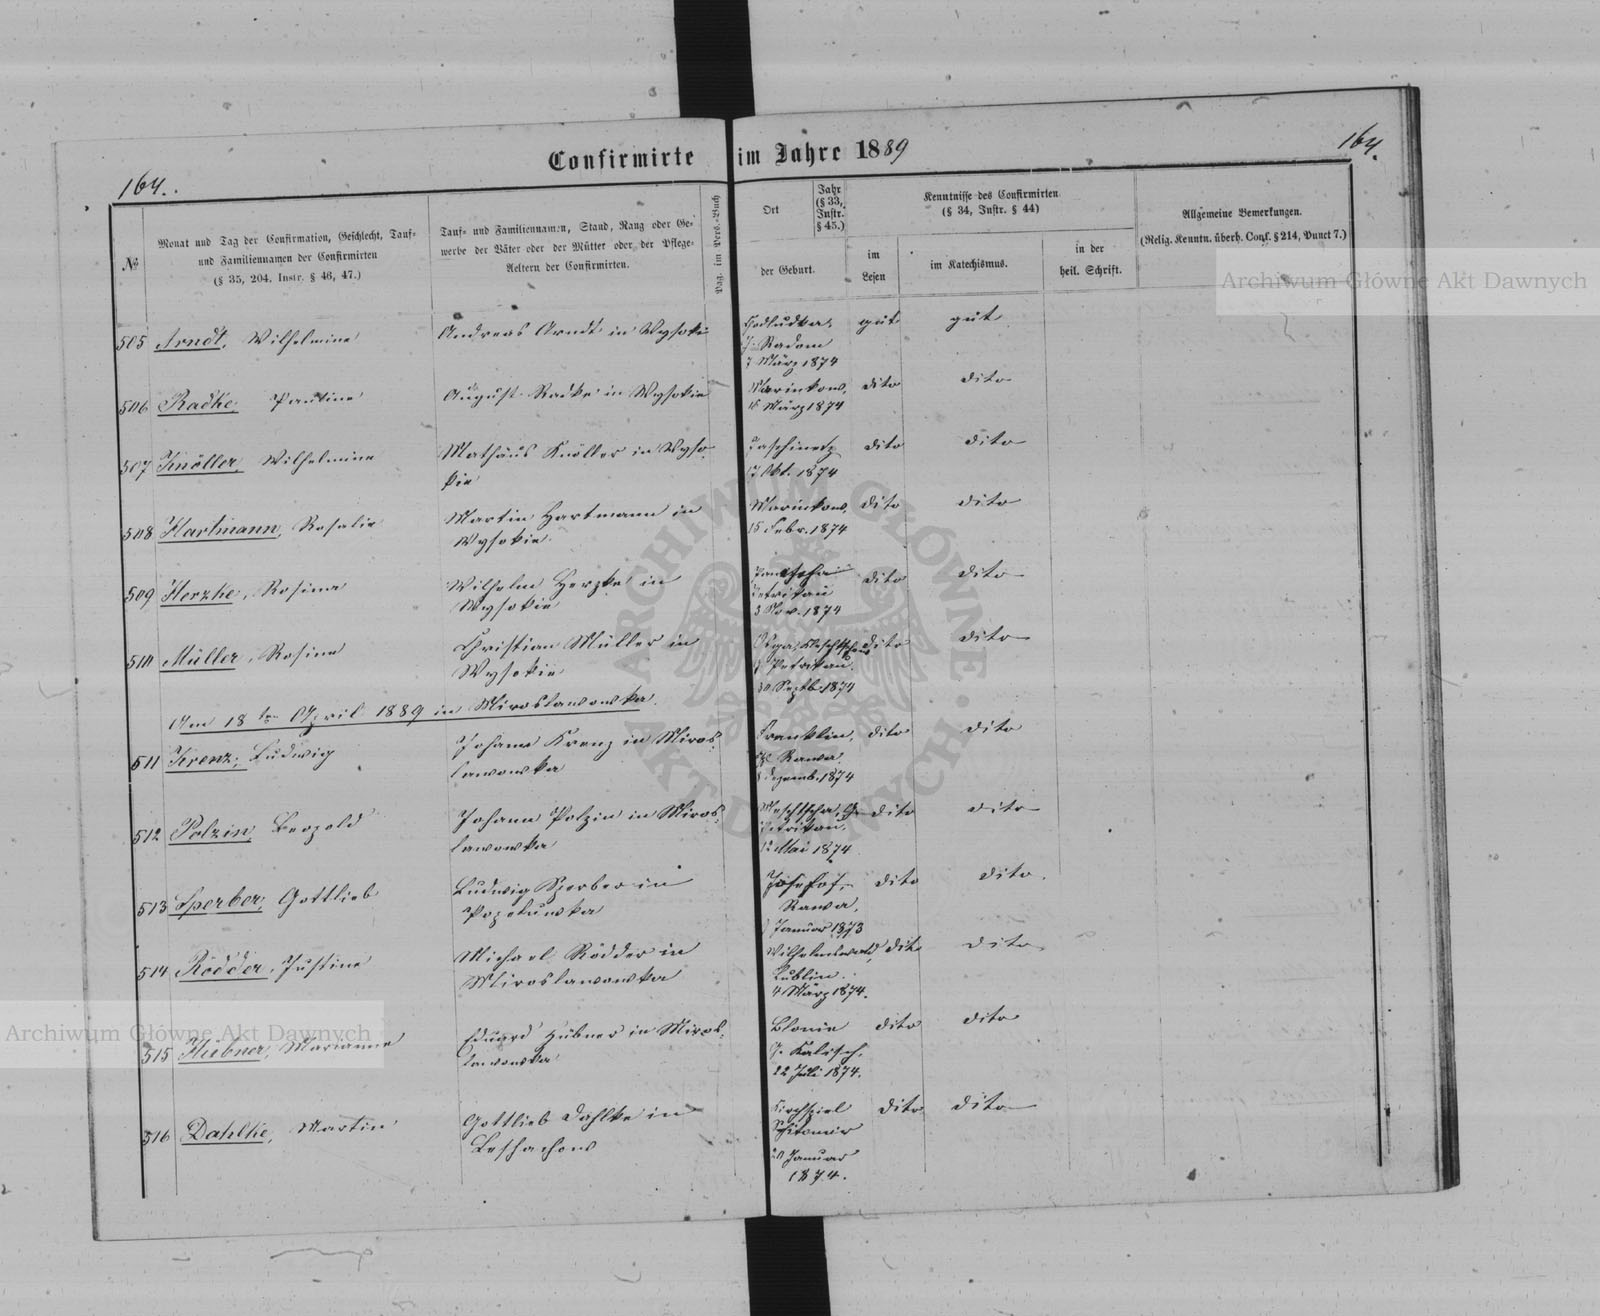 Confirmirte im Jahre 1889
164.
164.
№
Monat und Tag der Confirmation, Geschlecht, Tauf-
und Familiennamen der Confirmirten
(§ 35, 204. Instr. § 46, 47.)
Tauf- und Familiennamen, Stand, Rang oder Ge-
werbe der Väter oder der Mütter oder der Pflege-
Aeltern der Confirmirten.
Pag. im Pers.-Buch
Ort
Jahr
(§ 33,
Instr.
§ 45.)
der Geburt.
Kenntnisse des Confirmirten
(§ 34, Instr. § 44)
im
Lesen
im Katechismus.
in der
heil. Schrift.
Allgemeine Bemerkungen.
(Relig. Kenntn. überh. Conf. § 214, Punct 7.)
505 Arndt, Wilhelmine
Andreas Arndt in Wysokie
Radom
7 März 1874
gut
gut
506 Radke, Pauline
August Radke in Wysokie
Marinkow,
März 1874
dito
dito
507 Knöller, Wilhelmine
Mathäus Knöller in Wyso
kie
17 Okt. 1874
dito
dito
508 Hartmann, Rosalie
Martin Hartmann in
Wysokie
Marinkow,
15 Febr. 1874
dito
dito
509 Herzke, Rosina
Wilhelm Herzke in
Wysokie
Petrikau
3 Nov. 1874
dito
dito
510 Müller, Rosine
Christian Müller in
Wysokie
Petrikau,
30 Septb. 1874
dito
dito
Am 18ten April 1889 in Miroslawowka.
511 Krenz, Ludwig
Johann Krenz in Miros
lawowka
Franklin,
Rawa,
Dezemb. 1874
dito
dito
512 Polzin, Leopold
Johann Polzin in Miros
lawowka
Petrikau,
12 Mai 1874
dito
dito
513 Sperber, Gottlieb
Ludwig Sperber in
Josefof,
Rawa,
Januar 1873
dito
dito
514 Rödder, Justine
Michael Rödder in
Miroslawowka
Wilhelmswald,
Lublin.
4 März 1874.
dito
dito
515 Hübner, Marianne
Eduard Hübner in Miros
lawowka
Blonie
Kalisch,
22 Juli 1874.
dito
dito
516 Dahlke, Martin
Gottlieb Dahlke in
Kirchspiel
Schitomir
20 Januar
1874.
dito
dito
Archiwum Główne Akt Dawnych
Archiwum Główne Akt Dawnych
ARCHIWUM GŁÓWNE AKT DAWNYCH